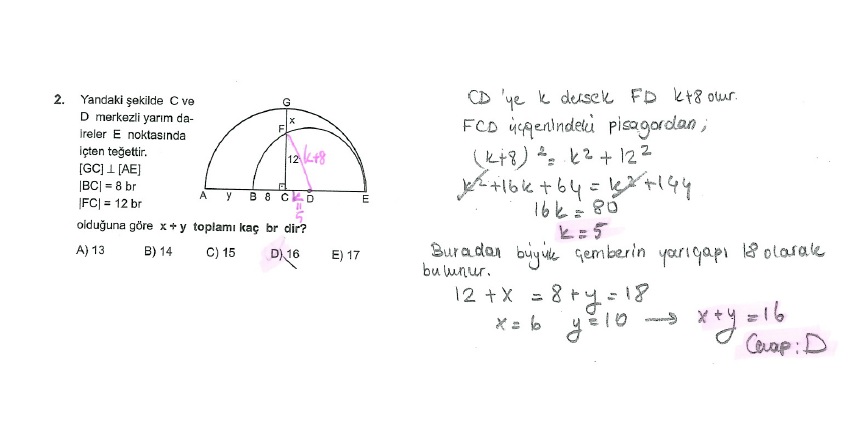 2. Yandaki şekilde C ve
D merkezli yarım da-
ireler E noktasında
içten teğettir.
[GC] ⊥ [AE]
|BC| = 8 br
|FC| = 12 br
olduğuna göre x + y toplamı kaç br dir?
A) 13 B) 14 C) 15 D) 16 E) 17
G
x
F
12
k+8
A y B 8 C k D E
=
5
CD 'ye k dersek FD k+8 olur.
FCD üçgenindeki pisagordan;
(k+8)² = k² + 12²
k² + 16k + 64 = k² + 144
16k = 80
k = 5
Buradan büyük çemberin yarıçapı 18 olarak
bulunur.
12 + x = 8 + y = 18
x = 6 y = 10 → x + y = 16
Cevap : D